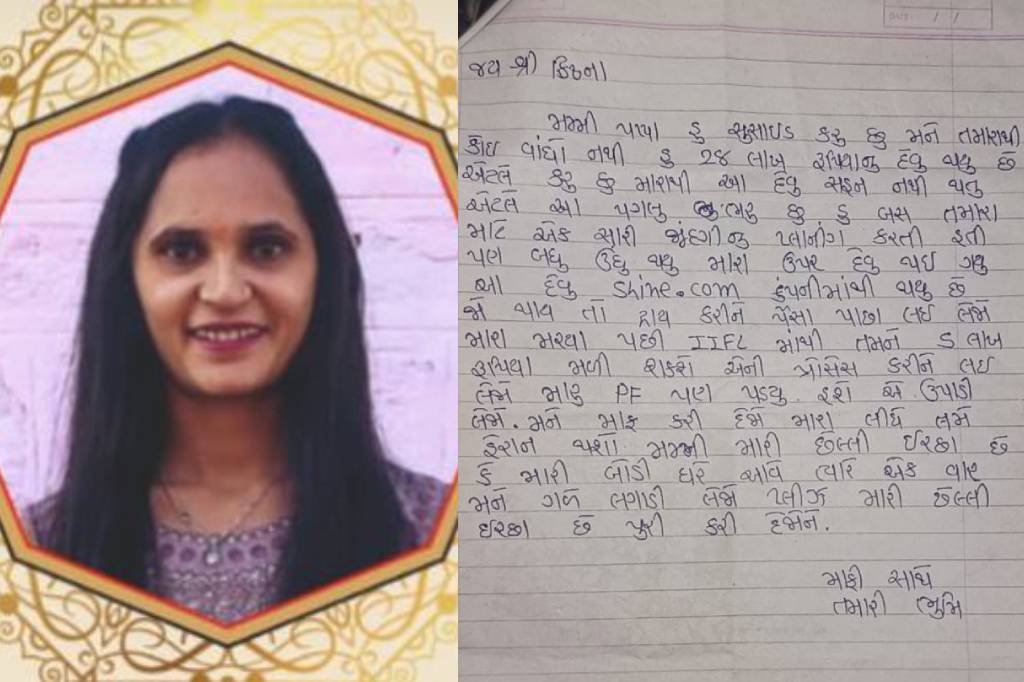 જય શ્રી ક્રિષ્ના
મમ્મી પપ્પા હુ સુસાઇડ કરુ છુ મને તમારાથી
કોઇ વાંધો નથી હુ ૨૪ લાખ રૂપિયાનુ દેવુ થયુ છે
એટલે કરુ છુ મારાથી આ દેવુ સહન નથી થતુ
એટલે આ પગલુ ભરુ છુ હુ બસ તમારા
માટે એક સારી જીંદગીનુ પ્લાનીંગ કરતી હતી
પણ બધુ ઉંધુ થયુ મારા ઉપર દેવુ થઇ ગયુ
આ દેવુ Shine.com કંપનીમાંથી થયુ છે
જો થાય તો કરીને પૈસા પાછા લઇ લેજો
મારા મરયા પછી IIFL માથી તમને ડ લાખ
રૂપિયા મળી શકશે એની પ્રોસેસ કરીને લઇ
લેજો મારુ PF પણ પડયુ હશે એ ઉપાડી
લેજો. મને માફ કરી દેજો મારા લીધે તમે
હેરાન થશો મમ્મી મારી છેલ્લી ઈચ્છા છે
કે મારી બોડી ઘરે આવે ત્યારે એક વાર
મને ગળે લગાડી લેજો પ્લીઝ મારી છેલ્લી
ઇચ્છા છે પુરી કરી દેજોને.
માફી સાથે
તમારી ભુમિ